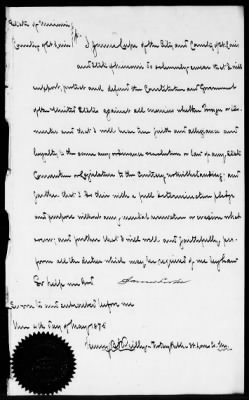 State of Missouri } ss.
County of St Louis } I James of the City and County of St Louis
and State of Missouri do solemnly swear that I will
support, protect and defend the Constitution and Government
of the United States against all enemies whether Foreign or Do-
mestic and that I will bear true faith and allegiance and
loyalty to the same any ordinance resolution or law of any State
Convention or Legislature to the Contrary notwithstanding; and
further that I do this with a full determination pledge
and purpose without any mental reservation or evasion what
soever, and further that I will well and faithfully per-
form all the duties which may be required of me by law
So help me God
Sworn to and subscribed before me
this day of May 1875
Notary Public St Louis Co Mo.